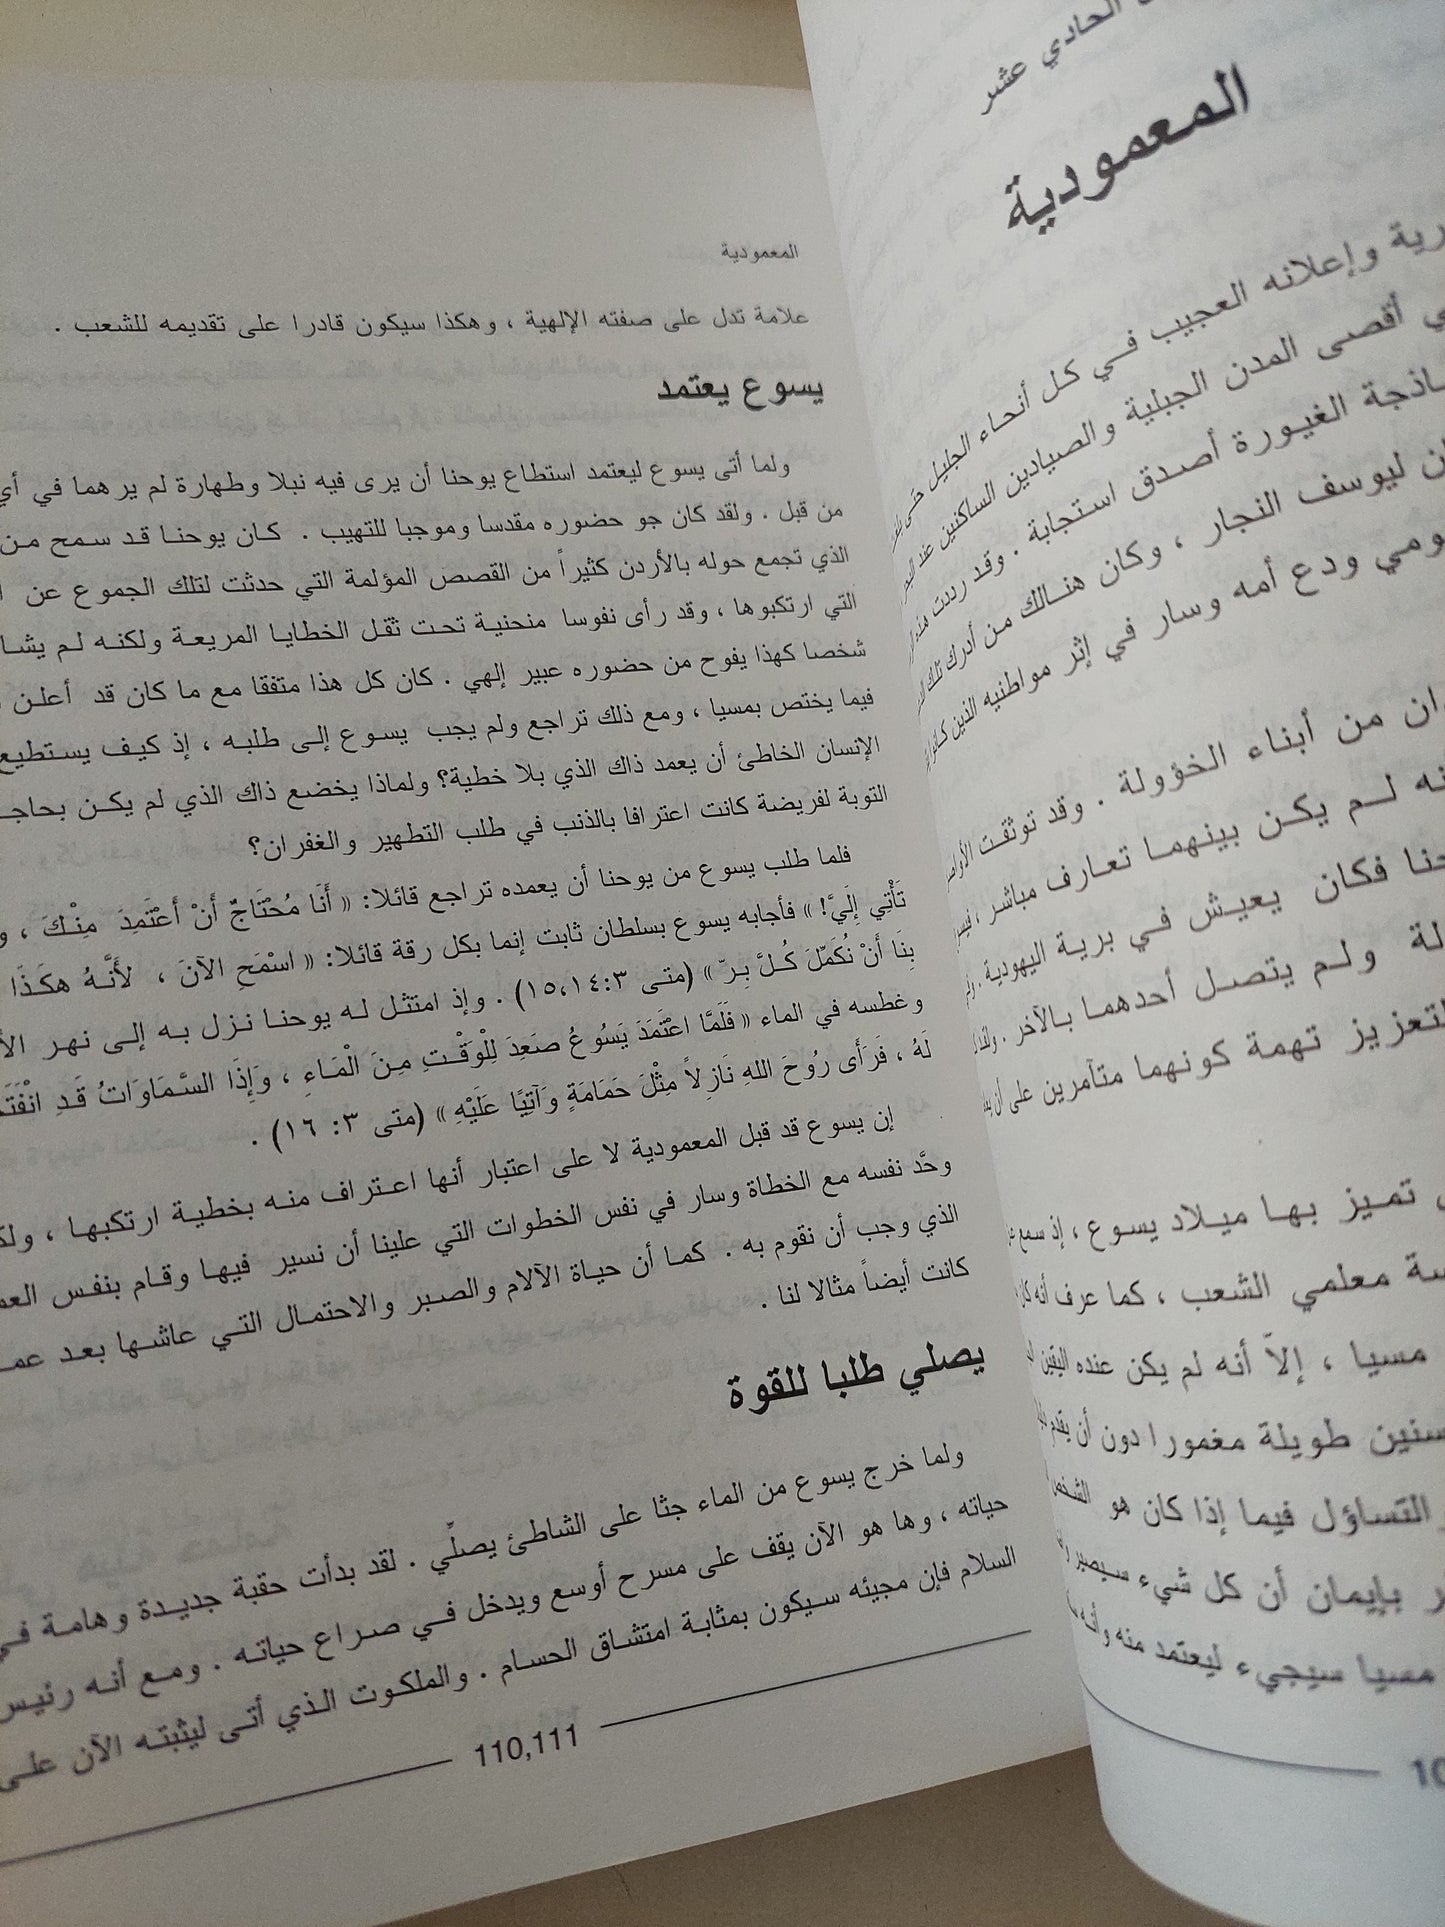 الحادي عشر
المعمودية
وإعلانه العجيب في كل أنحاء الجليل حتى
أقصى المدن الجبلية والصيادين الساكنين عند
الغيورة أصدق استجابة . وقد رددت
ليوسف النجار ، وكان هنالك من أدرك تلك
ودع أمه وسار في إثر مواطنيه الذين كانوا
من أبناء الخؤولة . وقد توثقت
لم يكن بينهما تعارف مباشر ،
فكان يعيش في برية اليهودية .
ولم يتصل أحدهما بالآخر .
تهمة كونهما متآمرين على أن
تميز بها ميلاد يسوع ، إذ سمع
معلمي الشعب ، كما عرف أنه كان
مسيا ، إلاّ أنه لم يكن عنده اليقين
سنين طويلة مغمورا دون أن يقدم
التساؤل فيما إذا كان هو الشخص
بإيمان أن كل شيء سيصير
مسيا سيجيء ليعتمد منه وأنه
المعمودية
علامة تدل على صفته الإلهية ، وهكذا سيكون قادرا على تقديمه للشعب .
يسوع يعتمد
ولما أتى يسوع ليعتمد استطاع يوحنا أن يرى فيه نبلا وطهارة لم يرهما في أي
من قبل . ولقد كان جو حضوره مقدسا وموجبا للتهيب . كان يوحنا قد سمح من
الذي تجمع حوله بالأردن كثيراً من القصص المؤلمة التي حدثت لتلك الجموع عن
التي ارتكبوها ، وقد رأى نفوسا منحنية تحت ثقل الخطايا المريعة ولكنه لم
شخصا كهذا يفوح من حضوره عبير إلهي . كان كل هذا متفقا مع ما كان قد أعلن
فيما يختص بمسيا ، ومع ذلك تراجع ولم يجب يسوع إلى طلبه ، إذ كيف يستطيع
الإنسان الخاطئ أن يعمد ذاك الذي بلا خطية؟ ولماذا يخضع ذاك الذي لم يكن
التوبة لفريضة كانت اعترافا بالذنب في طلب التطهير والغفران؟
فلما طلب يسوع من يوحنا أن يعمده تراجع قائلا: « أَنَا مُحْتَاجٌ أَنْ أَعْتَمِدَ مِنْكَ ،
تَأْتِي إِلَيَّ! » فأجابه يسوع بسلطان ثابت إنما بكل رقة قائلا: « اسْمَحِ الآنَ ، لأَنَّهُ هكَذَا
بِنَا أَنْ نُكَمِّلَ كُلَّ بِرّ » (متى ٣:١٥،١٤) . وإذ امتثل له يوحنا نزل به إلى نهر
وغطسه في الماء « فَلَمَّا اعْتَمَدَ يَسُوعُ صَعِدَ لِلْوَقْتِ مِنَ الْمَاءِ ، وَإِذَا السَّمَاوَاتُ قَدِ
لَهُ ، فَرَأَى رُوحَ اللهِ نَازِلاً مِثْلَ حَمَامَةٍ وَآتِيًا عَلَيْهِ » (متى ٣: ١٦) .
إن يسوع قد قبل المعمودية لا على اعتبار أنها اعتراف منه بخطية ارتكبها ،
وحَّد نفسه مع الخطاة وسار في نفس الخطوات التي علينا أن نسير فيها وقام بنفس
الذي وجب أن نقوم به . كما أن حياة الآلام والصبر والاحتمال التي عاشها بعد
كانت أيضاً مثالا لنا .
يصلي طلبا للقوة
ولما خرج يسوع من الماء جثا على الشاطئ يصلِّي . لقد بدأت حقبة جديدة وهامة في
حياته ، وها هو الآن يقف على مسرح أوسع ويدخل في صراع حياته . ومع أنه رئيس
السلام فإن مجيئه سيكون بمثابة امتشاق الحسام . والملكوت الذي أتى ليثبته الآن على
110,111